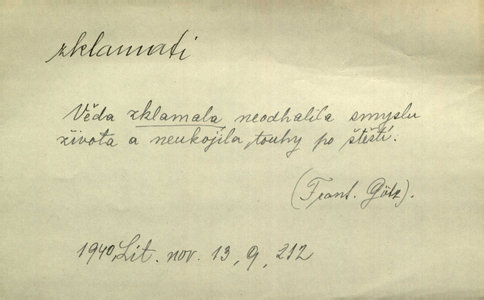 zklamati
Věda zklamala, neodhalila smyslu
života a neukojila touhy po štěstí.
(Frant. Götz).
1940, Lit. nov. 13, 9, 212